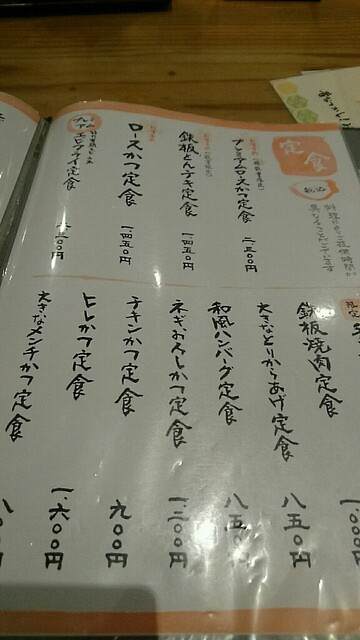 定食
税込
料理によりご提供時間が
異なることがございます
プレミアムロースかつ定食 二、三五〇円
鉄板とんテキ定食 一、四五〇円
ロースかつ定食 一、四五〇円
エビフライ定食
限定
鉄板焼肉定食 一、〇〇〇円
大きなとりからあげ定食 八五〇円
和風ハンバーグ定食 八五〇円
ネギおろしかつ定食 一、二〇〇円
チキンかつ定食 九〇〇円
ヒレかつ定食 一、六〇〇円
大きなメンチかつ定食